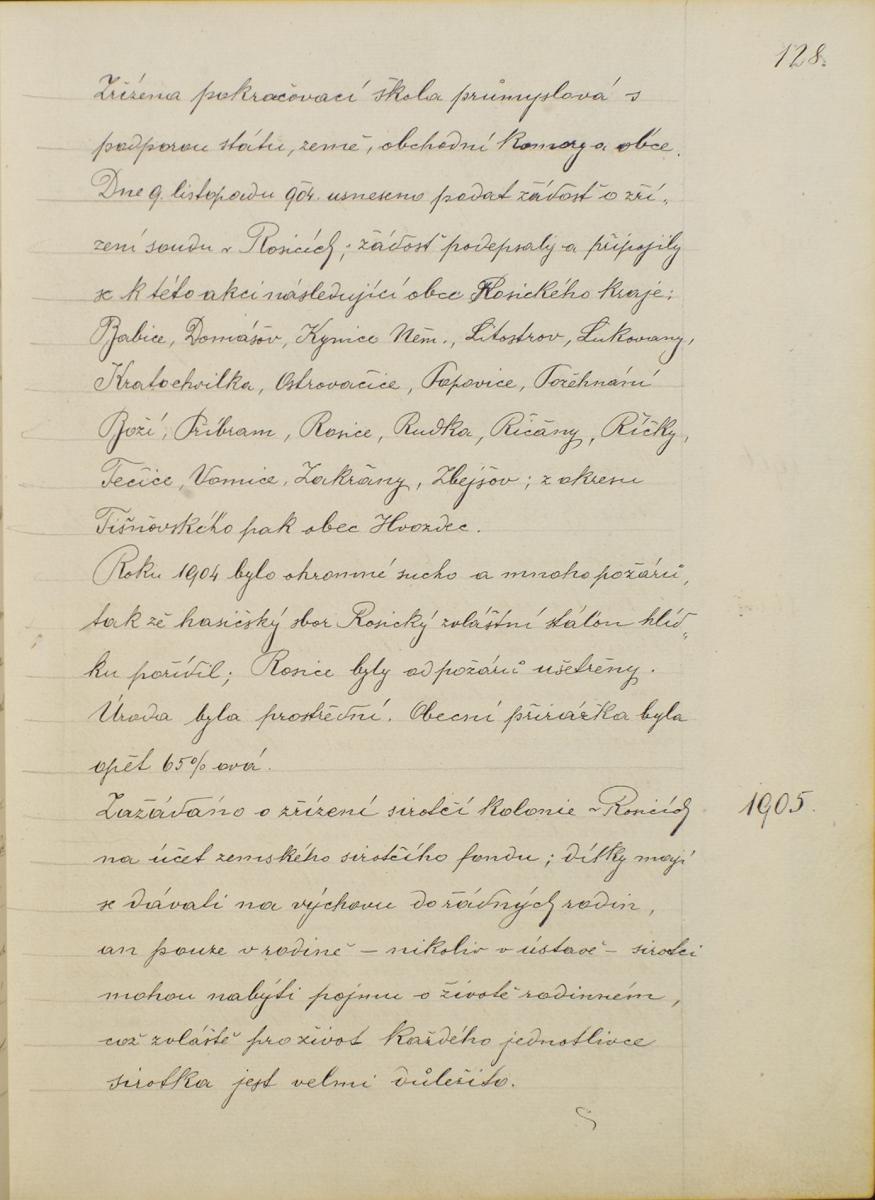 128.
Zřízena pokračovací škola průmyslová s
podporou státu, země, obchodní komory a obce.
Dne 9. listopadu 904. usneseno podat žádost o zří-
zení soudu v Rosicích; žádost podepsaly a připojily
se k této akci následující obce Rosického kraje:
Babice, Domášov, Kynice Něm., Litostrov, Lukovany,
Kratochvilka, Ostrovačice, Popovice, Požehnání
Boží, Příbram, Rosice, Rudka, Říčany, Říčky,
Tečice, Vomice, Zakřany, Zbejšov; z okresu
Tišňovského pak obec Hvozdec.
Roku 1904 bylo ohromné sucho a mnoho požárů,
tak že hasičský sbor Rosický zvláštní stálou hlíd-
ku pořídil; Rosice byly od požárů ušetřeny.
Úroda byla prostřední. Obecní přirážka byla
opět 65% ová.
Zažádáno o zřízení sirotčí kolonie v Rosicích
1905.
na účet zemského sirotčího fondu; dítky mají
se dávati na výchovu do řádných rodin,
an pouze v rodině – nikoliv v ústavě – sirotci
mohou nabýti pojmu o životě rodinném,
což zvláště pro život každého jednotlivce
sirotka jest velmi důležito.